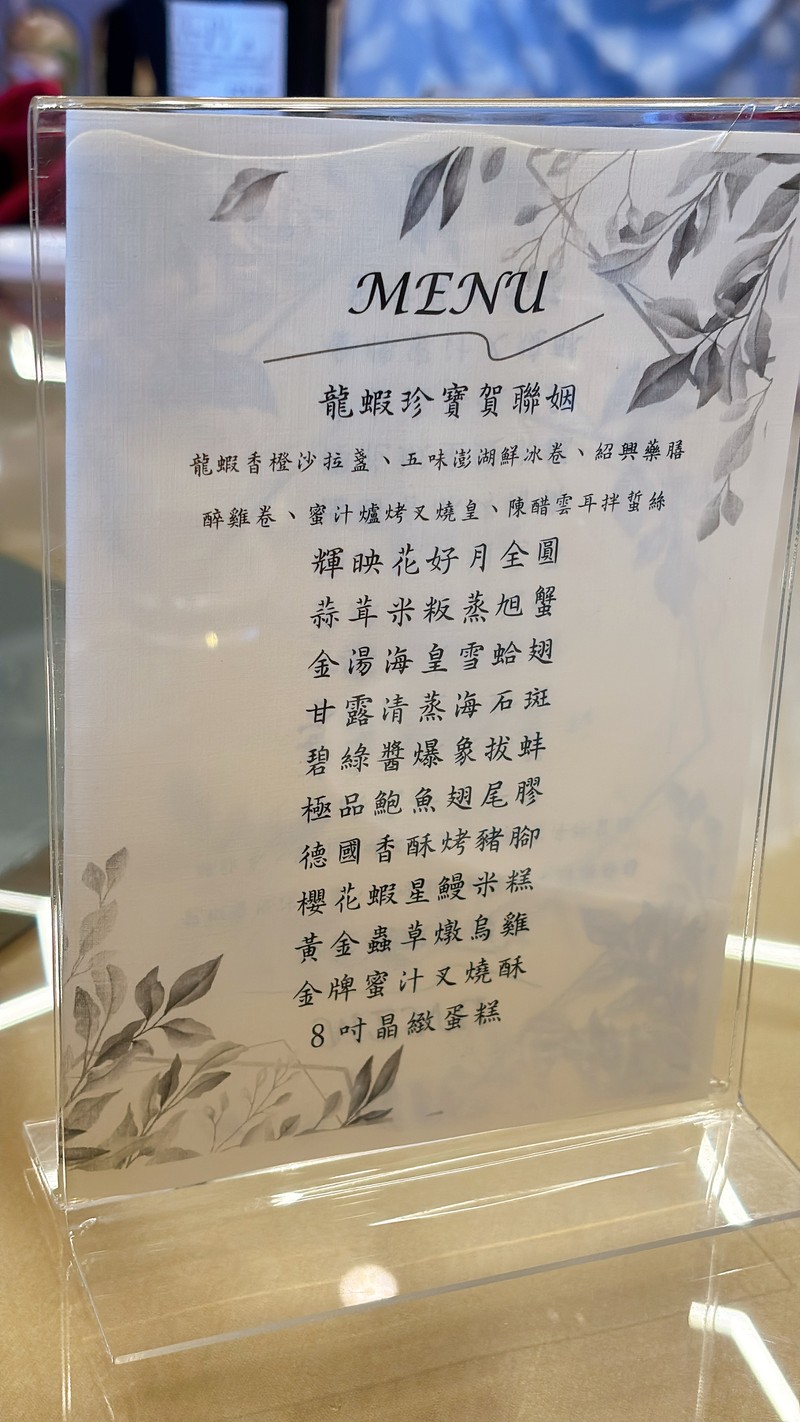 MENU
龍蝦珍寶賀聯姻
龍蝦香橙沙拉盞、五味澎湖鮮冰卷、紹興藥膳
醉雞卷、蜜汁爐烤叉燒皇、陳醋雲耳拌蜇絲
輝映花好月全圓
蒜茸米粄蒸旭蟹
金湯海皇雪蛤翅
甘露清蒸海石斑
碧綠醬爆象拔蚌
極品鮑魚翅尾膠
德國香酥烤豬腳
櫻花蝦星鰻米糕
黃金蟲草燉烏雞
金牌蜜汁叉燒酥
8吋晶緻蛋糕